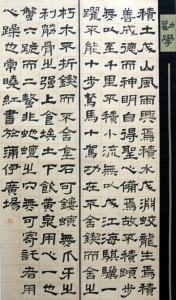 勸學
積土成山風雨興焉積水成淵蛟龍生焉積
善成德而神明自得聖心備焉故不積蹞步
無以至千里不積小流無以成江海騏驥一
躍不能十步駑馬十駕功在不舍鍥而舍之
朽木不折鍥而不舍金石可鏤螾無爪牙之
利筋骨之強上食埃土下飲黃泉用心一也
蟹六跪而二螯非蛇蟺之穴無可寄託者用
心躁也常曉紅書於浦伊廣場